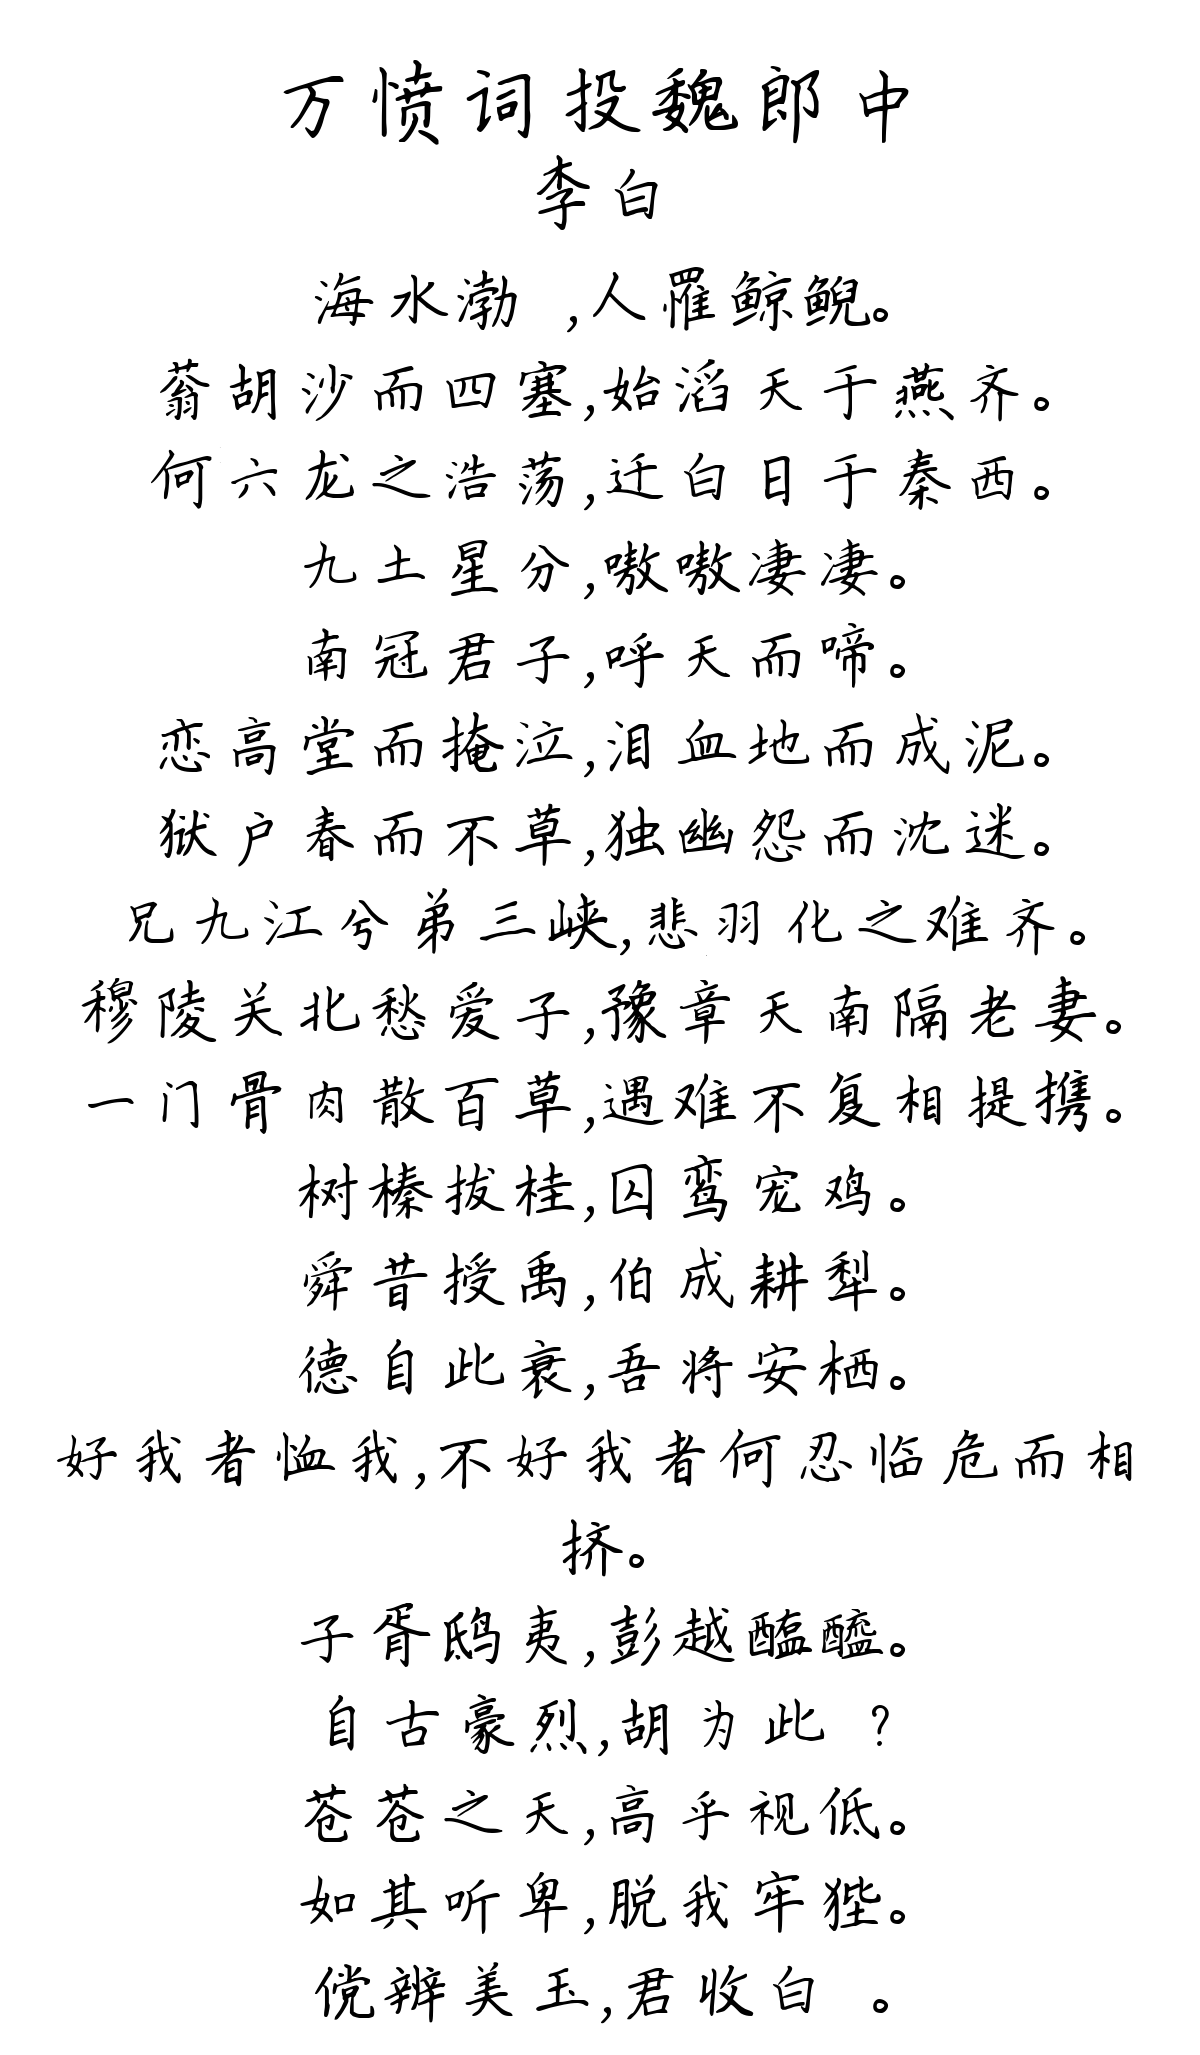 万愤词投魏郎中
李白
海水渤 ,人罹鲸鲵。
蓊胡沙而四塞,始滔天于燕齐。
何六龙之浩荡,迁白日于秦西。
九土星分,嗷嗷凄凄。
南冠君子,呼天而啼。
恋高堂而掩泣,泪血地而成泥。
狱户春而不草,独幽怨而沈迷。
兄九江兮弟三峡,悲羽化之难齐。
穆陵关北愁爱子,豫章天南隔老妻。
一门骨肉散百草,遇难不复相提携。
树榛拔桂,囚鸾宠鸡。
舜昔授禹,伯成耕犁。
德自此衰,吾将安栖。
好我者恤我,不好我者何忍临危而相
挤。
子胥鸱夷,彭越醢醯。
自古豪烈,胡为此 ?
苍苍之天,高乎视低。
如其听卑,脱我牢狴。
傥辨美玉,君收白 。